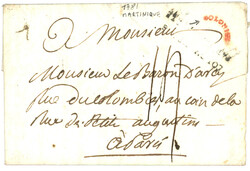 1781
MARTINIQUE
COLONIES
Monsieur
Monsieur Le Baron D'ar
rue du colombier, au coin de la
Rue des petits augustins
à Paris